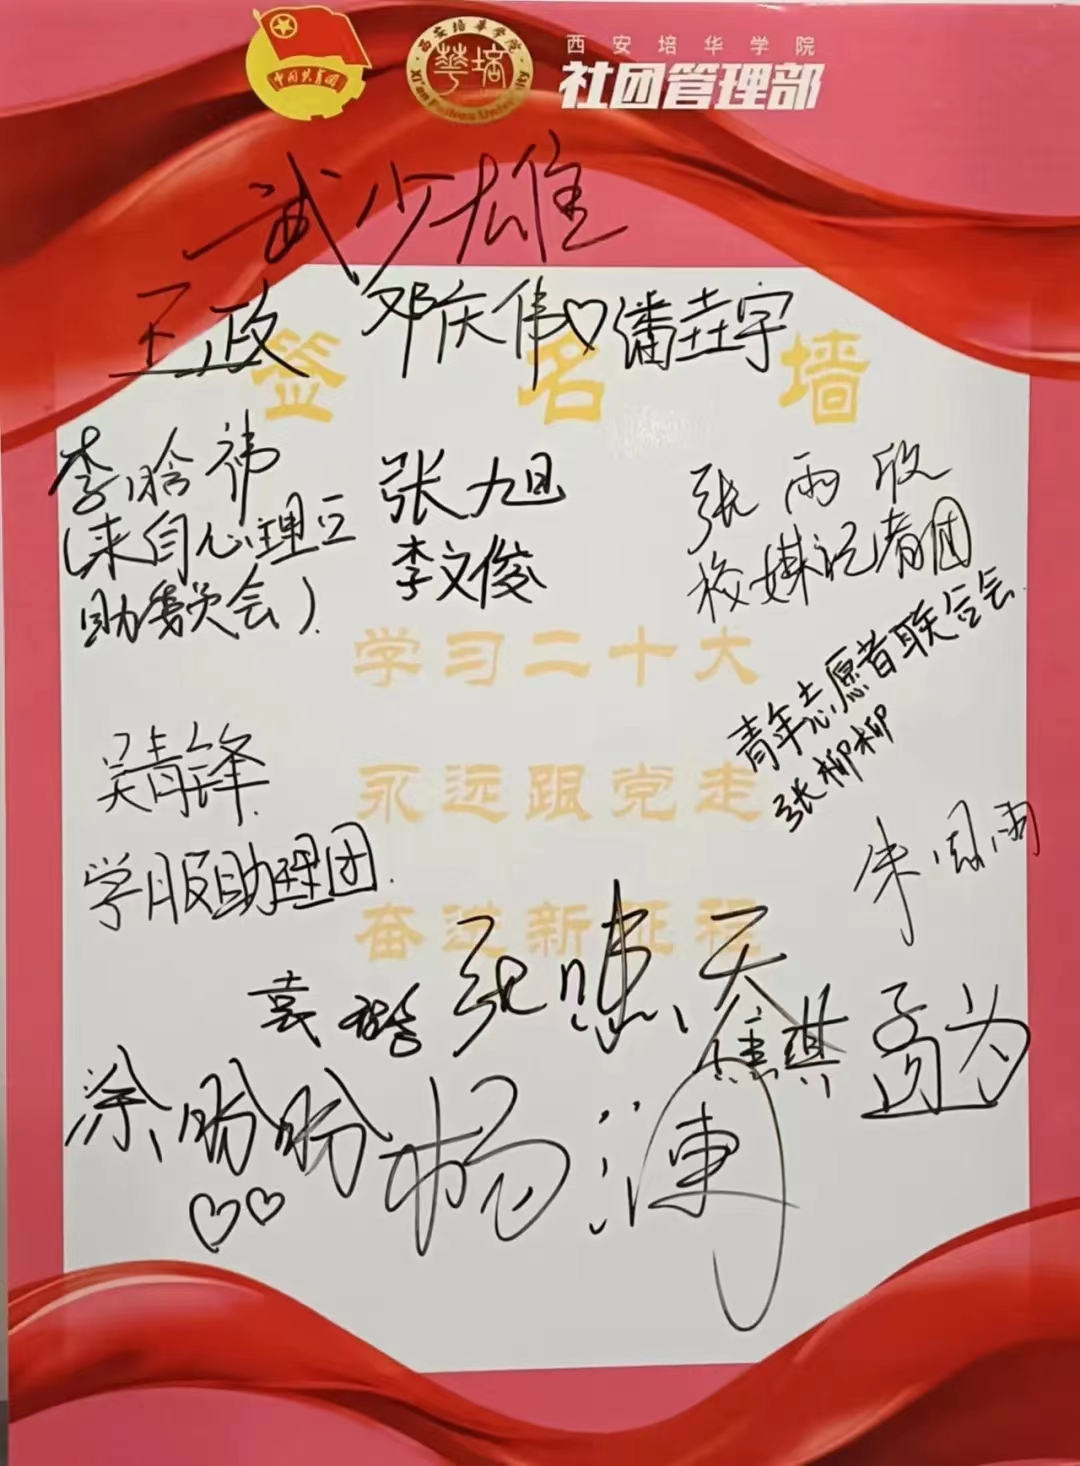 中国共青团
西安培华学院
Xi'an Peihua University
华培
西安培华学院
社团管理部
武少雄
王政 邓庆伟♡潘垚宇
签名墙
李晗祎 张旭 张雨欣
(来自心理互 李文俊 校媒记者团
助委员会)
学习二十大
青年志愿者联合会
张柳柳
吴青锋
永远跟党走
学服助理团
朱雨
奋进新征程
袁 张 天
琪 孟为
涂盼盼 杨澜
♡♡